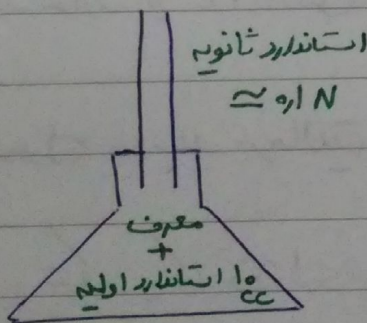 استاندارد ثانویه
≃ ۰٫۱ N
معرف
+
۱۰cc استاندارد اولیه